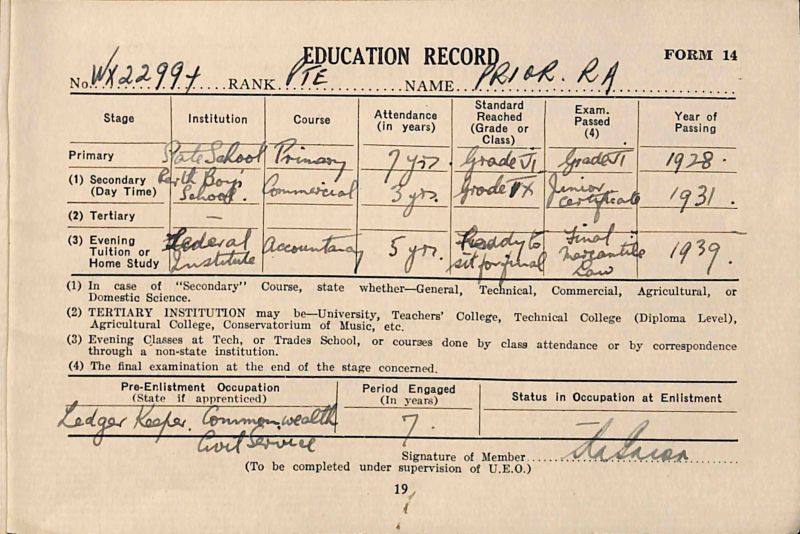 EDUCATION RECORD FORM 14
No. WX22997 RANK PTE NAME PRIOR. RA
Stage Institution Course Attendance (in years) Standard Reached (Grade or Class) Exam. Passed (4) Year of Passing
Primary State School Primary 7 yrs. Grade VI Grade VI 1928.
(1) Secondary (Day Time) Perth Boys School. Commercial 3 yrs. Grade IX Junior Certificate 1931.
(2) Tertiary —
(3) Evening Tuition or Home Study Federal Institute Accountancy 5 yrs. Ready to sit for final Final in Mercantile Law 1939.
(1) In case of "Secondary" Course, state whether—General, Technical, Commercial, Agricultural, or
Domestic Science.
(2) TERTIARY INSTITUTION may be—University, Teachers' College, Technical College (Diploma Level),
Agricultural College, Conservatorium of Music, etc.
(3) Evening Classes at Tech, or Trades School, or courses done by class attendance or by correspondence
through a non-state institution.
(4) The final examination at the end of the stage concerned.
Pre-Enlistment Occupation (State if apprenticed) Period Engaged (In years) Status in Occupation at Enlistment
Ledger Keeper. Commonwealth 7.
Civil Service
Signature of Member
(To be completed under supervision of U.E.O.)
19